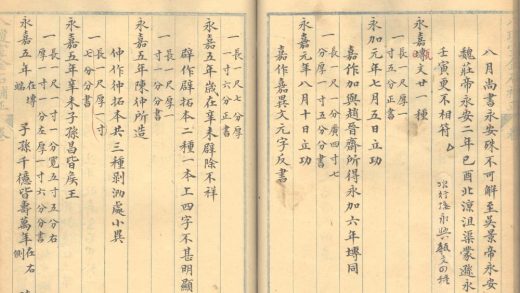 八月尚書永安殊不可解至吳景帝永安
魏莊帝永安二年己酉北涼沮渠蒙遜永
壬寅更不相符
永嘉塼文廿一種
甎
永加元年七月五日立功
一長尺 分廣四寸七
一厚一寸六分正書
嘉作加與趙晉齋所得永加六年塼同
永嘉元年八月十日立功
一長尺厚一
嘉作嘉異文元字反書
永嘉五年歲在辛未辟除不祥
一長尺七分厚
一寸六分分書
辟作辟拓本二種一本上四字不甚明顯
永嘉五年陳仲所造
一長尺厚一
寸分書
仲作仲拓本共三種剝泐處小異
永嘉五年辛未子孫昌皆侯王
一長尺厚一寸
七分分書
永嘉五年 在塼端 子孫千億皆壽萬年 在右側
一厚一寸一分寬五寸五分右
一厚一寸一分左厚一寸六分分書